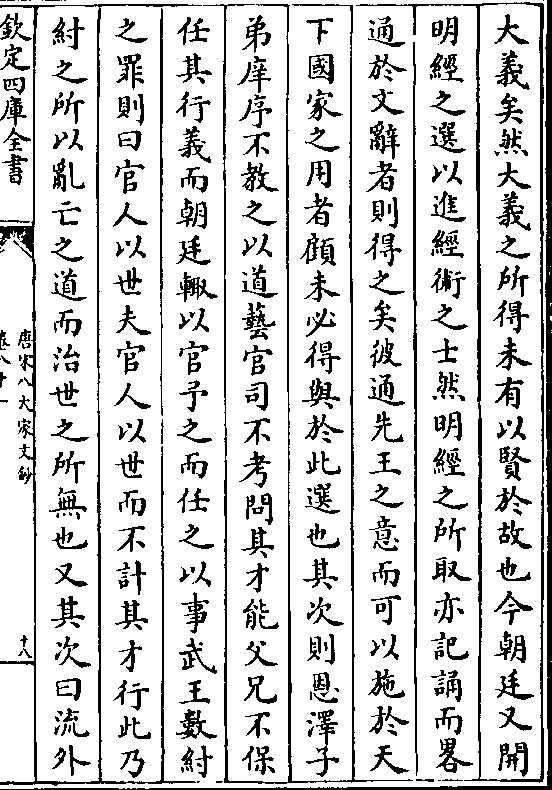 大義矣然大義之所得未有以賢於故也今朝廷又開
明經之選以進經術之士然明經之所取亦記誦而畧
通於文辭者則得之矣彼通先王之意而可以施於天
下國家之用者顧未必得與於此選也其次則恩澤子
弟庠序不教之以道藝官司不考問其才能父兄不保
任其行義而朝廷輙以官予之而任之以事武王數紂
之罪則曰官人以世夫官人以世而不計其才行此乃
紂之所以亂亡之道而治世之所無也又其次曰流外
欽定四庫全書
唐宋八大家文鈔
卷八十一
十八